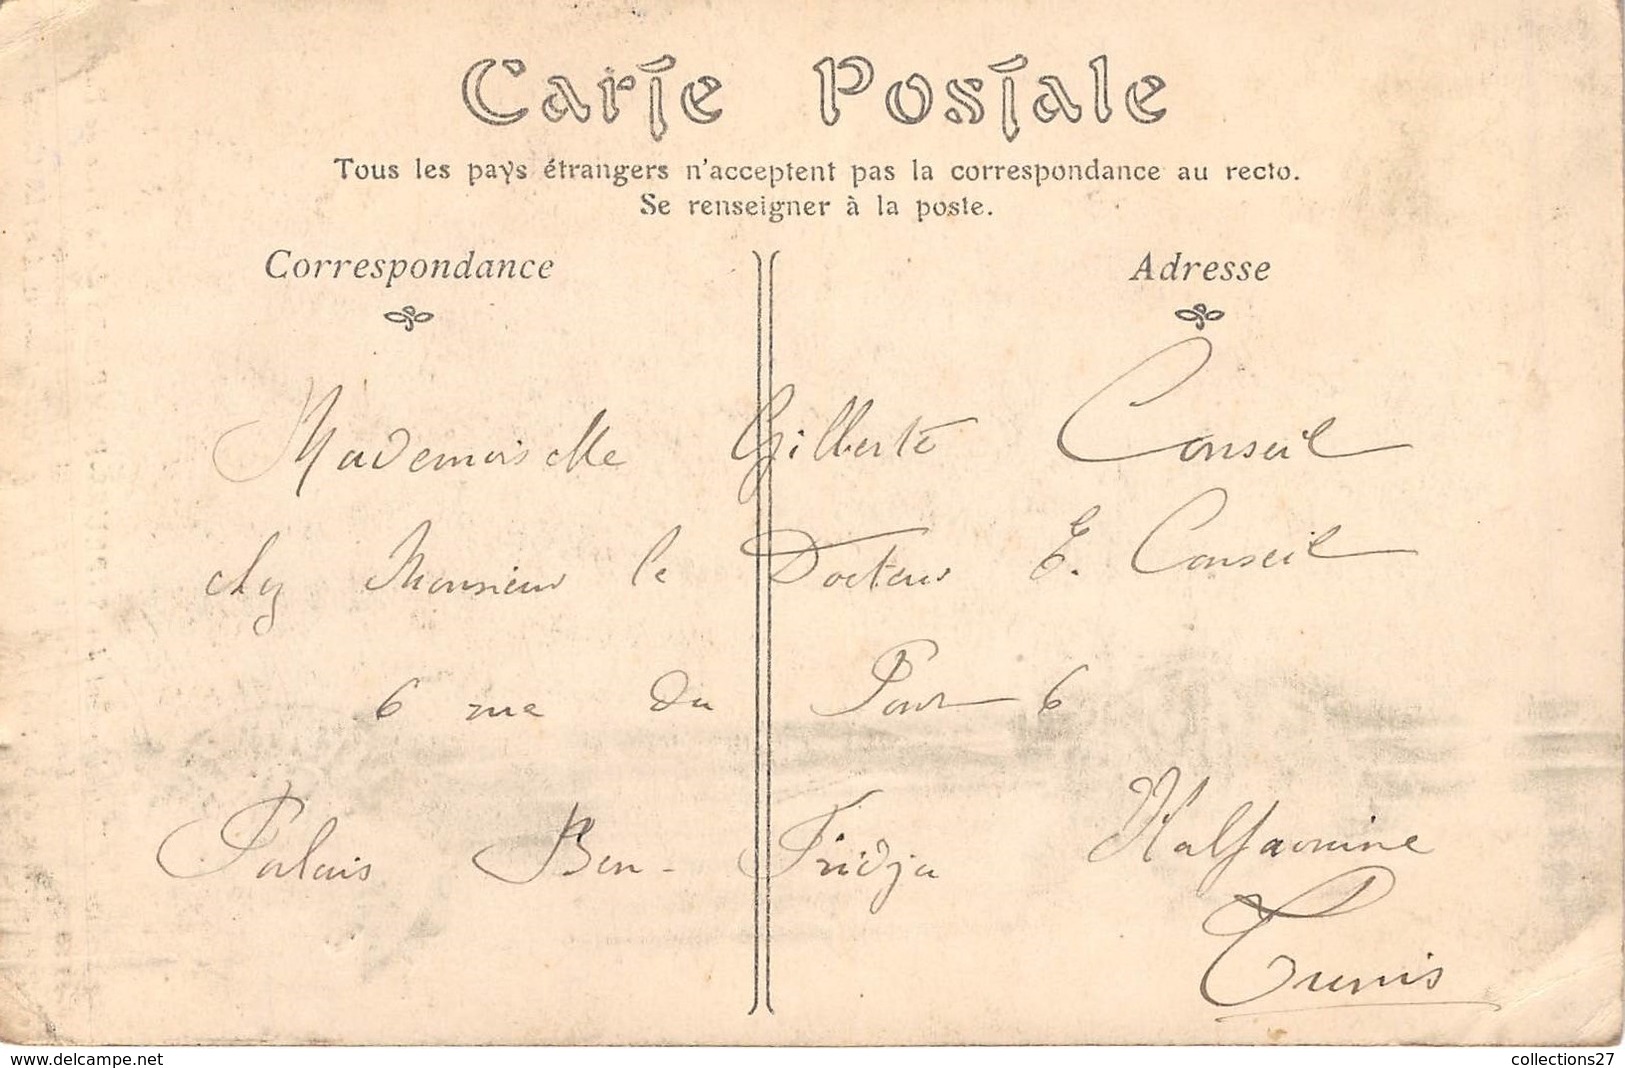 Carte Postale
Tous les pays étrangers n'acceptent pas la correspondance au recto.
Se renseigner à la poste.
Correspondance
Adresse
Mademoiselle Gilberte Conseil
chez Monsieur le Docteur E. Conseil
6 rue du 6
Palais Ben-Fridja Halfaouine
Tunis
www.delcampe.net
collections27